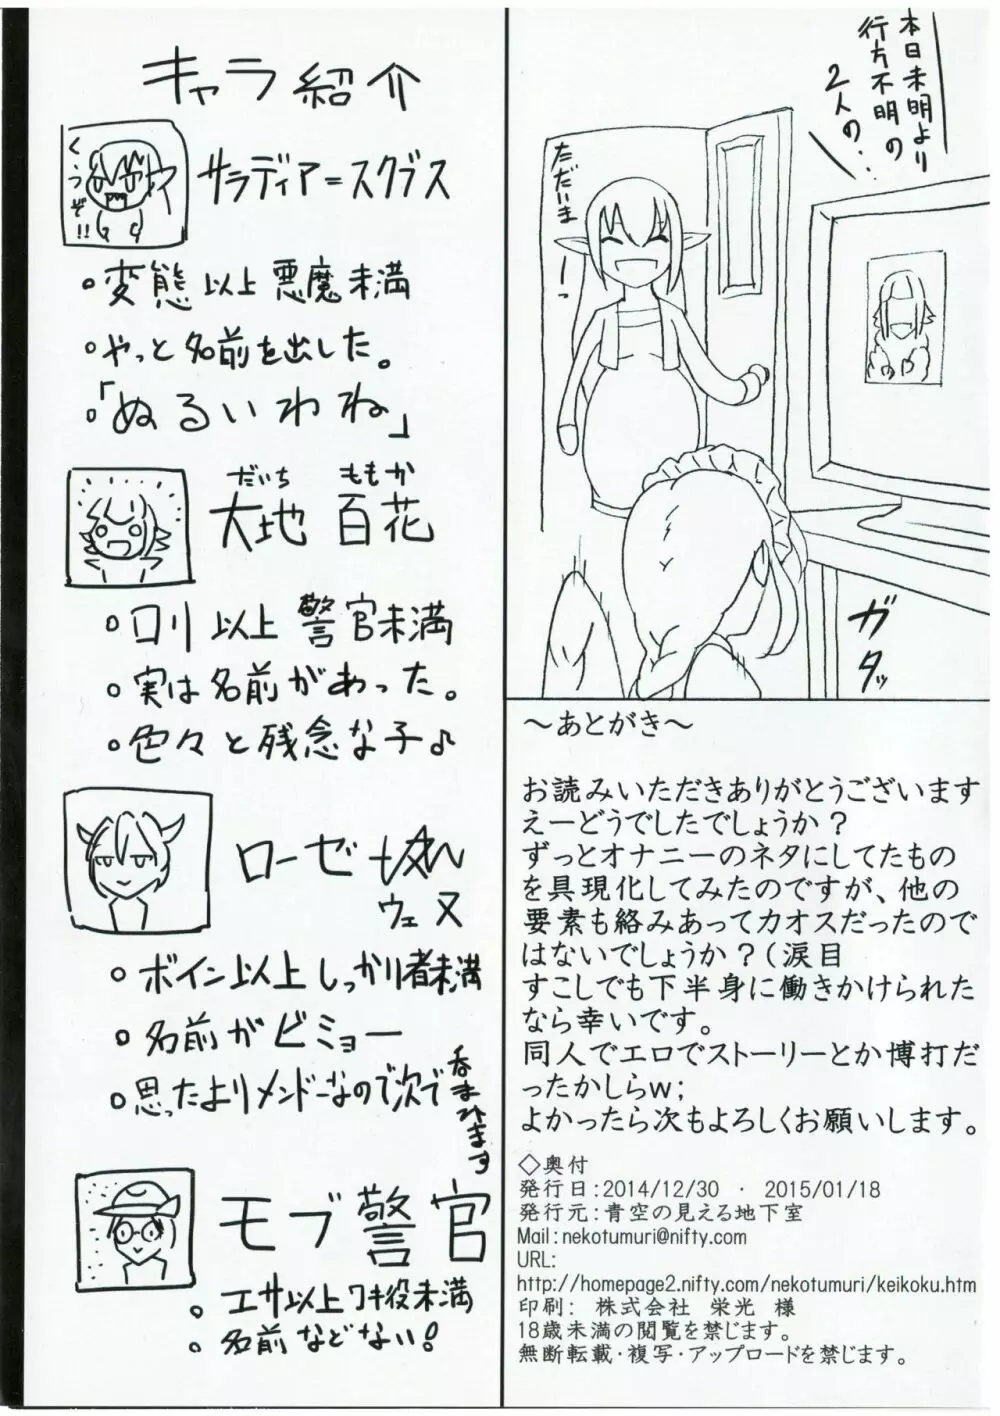 本日未明より
行方不明の
2人の・・
ただいまーっ
ガタッ
～あとがき～
お読みいただきありがとうございます
えーどうでしたでしょうか？
ずっとオナニーのネタにしてたもの
を具現化してみたのですが、他の
要素も絡みあってカオスだったので
はないでしょうか？(涙目
すこしでも下半身に働きかけられた
なら幸いです。
同人でエロでストーリーとか博打だ
ったかしらw;
よかったら次もよろしくお願いします。
◇奥付
発行日:2014/12/30 ・ 2015/01/18
発行元:青空の見える地下室
Mail:nekotumuri@nifty.com
URL:
http://homepage2.nifty.com/nekotumuri/keikoku.htm
印刷: 株式会社 栄光 様
18歳未満の閲覧を禁じます。
無断転載・複写・アップロードを禁じます。
キャラ紹介
くうぞ!!
サラディア=スクブス
・変態以上悪魔未満
・やっと名前を出した。
・「ぬるいわね」
だいち ももか
大地 百花
・ロリ以上警官未満
・実は名前があった。
・色々と残念な子♪
ローゼ
ウェヌ
・ボイン以上しっかり者未満
・名前がビミョー
・思ったよりメンドーなので次で呑まれます
モブ警官
・エサ以上ワキ役未満
・名前などない!